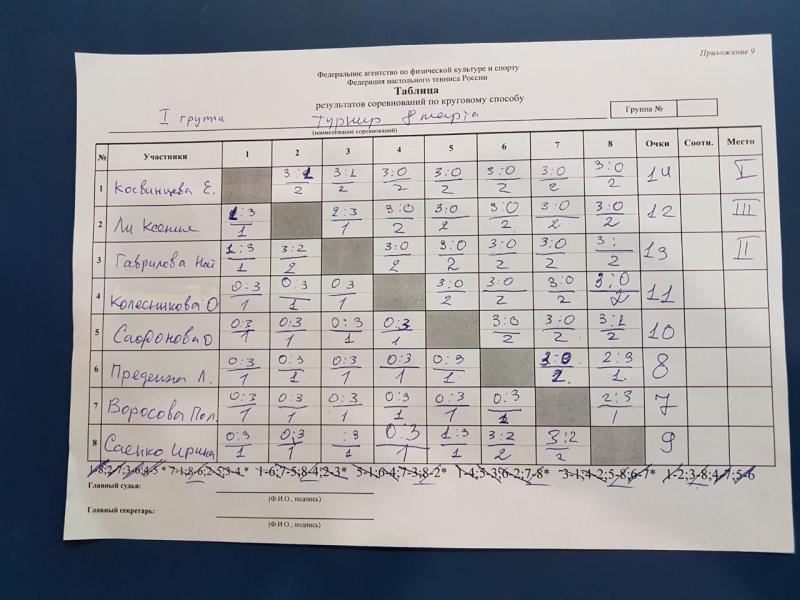 Приложение 9
Федеральное агентство по физической культуре и спорту
Федерация настольного тенниса России
Таблица
результатов соревнований по круговому способу
I группа Турнир 8 марта
Группа №
(наименование соревнований)
№ Участники 1 2 3 4 5 6 7 8 Очки Соотн. Место
1 Косвинцева Е. 3:1 3:1 3:0 3:0 3:0 3:0 3:0 14 I
2 2 2 2 2 2 2
2 Ли Ксения 1:3 2:3 3:0 3:0 3:0 3:0 3:0 12 III
1 1 2 2 2 2 2
3 Гаврилова Нат 1:3 3:2 3:0 3:0 3:0 3:0 3: 13 II
1 2 2 2 2 2 2
4 Колесникова О 0:3 0:3 0:3 3:0 3:0 3:0 3:0 11
1 1 1 2 2 2 2
5 Сафонова О 0:3 0:3 0:3 0:3 3:0 3:0 3:1 10
1 1 1 1 2 2 2
6 Предеина Л. 0:3 0:3 0:3 0:3 0:3 3:0 2:3 8
1 1 1 1 1 2. 1.
7 Воросова Пол. 0:3 0:3 0:3 0:3 0:3 0:3 2:3 7
1 1 1 1 1 1 1
8 Саенко Ирина 0:3 0:3 :3 0:3 1:3 3:2 3:2 9
1 1 1 1 1 2 2
1-8;2-7;3-6;4-5 * 7-1;8-6;2-5;3-4.* 1-6;7-5;8-4;2-3* 5-1;6-4;7-3;8-2* 1-4;5-3;6-2;7-8* 3-1;4-2;5-8;6-7* 1-2;3-8;4-7;5-6
Главный судья:
(Ф.И.О., подпись)
Главный секретарь:
(Ф.И.О., подпись)